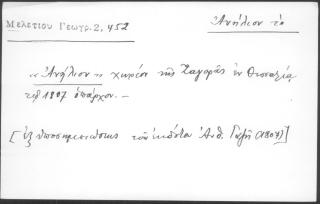 Ἀνήλιον τὸ
Μελετίου Γεωγρ. 2, 452
« Ἀνήλιον » χωρίον τῆς Ζαγορᾶς ἐν Θεσσαλίᾳ
τῷ 1807 ὑπάρχον. —
[ἐξ ὑποσημειώσεως τοῦ ἐκδότου Ἀνθ. Γαζῆ (1807)]